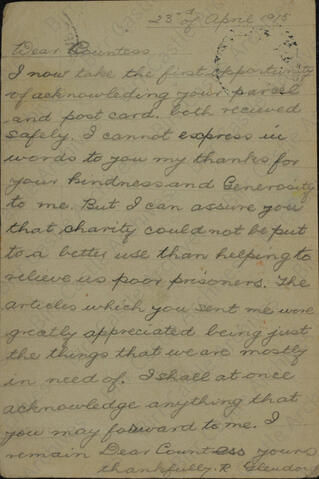 23rd of April 1915
Dear Countess
I now take the first opportunity
of acknowleding your parcel
and post card. both recieved
safely. I cannot express in
words to you my thanks for
your kindness and Generosity
to me. But I can assure you
that charity could not be put
to a better use than helping to
relieve us poor prisoners. The
articles which you sent me were
greatly appreciated being just
the things that we are mostly
in need of. I shall at once
acknowledge anything that
you may forward to me. I
remain Dear Countess yours
thankfully. R